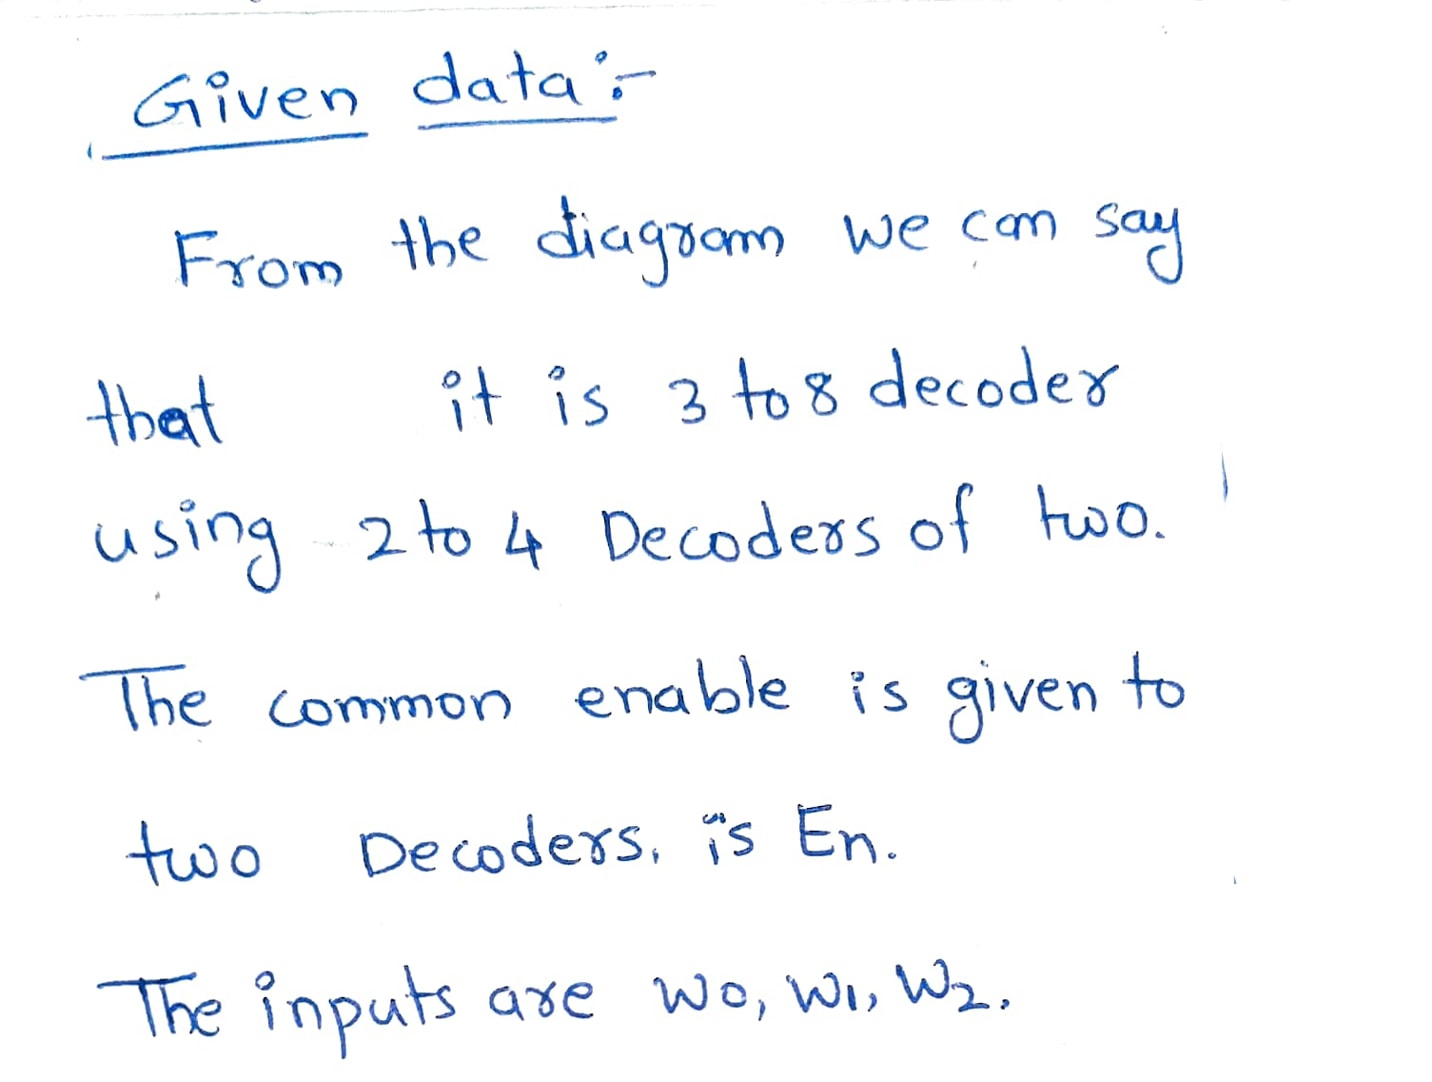 Given data :-
From the diagram we can say
that it is 3 to 8 decoder
using 2 to 4 Decoders of two.
The common enable is given to
two Decoders. is En.
The inputs are w0, w1, w2.